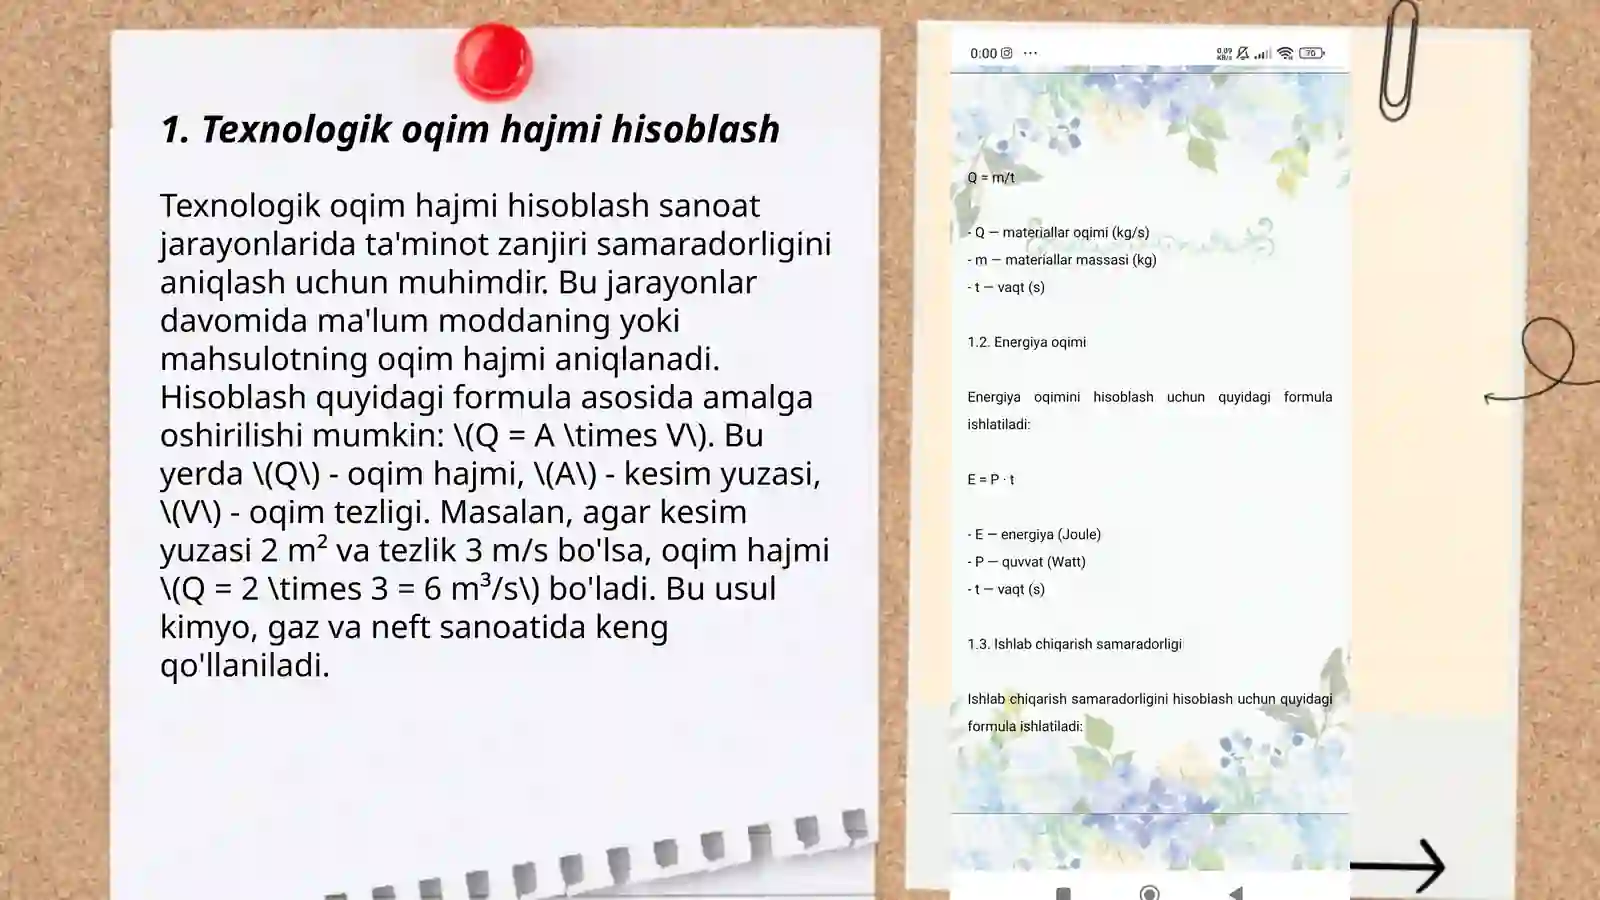 1. Texnologik oqim hajmi hisoblash
Texnologik oqim hajmi hisoblash sanoat
jarayonlarida ta'minot zanjiri samaradorligini
aniqlash uchun muhimdir. Bu jarayonlar
davomida ma'lum moddaning yoki
mahsulotning oqim hajmi aniqlanadi.
Hisoblash quyidagi formula asosida amalga
oshirilishi mumkin: \(Q = A \times V\). Bu
yerda \(Q\) - oqim hajmi, \(A\) - kesim yuzasi,
\(V\) - oqim tezligi. Masalan, agar kesim
yuzasi 2 m² va tezlik 3 m/s bo'lsa, oqim hajmi
\(Q = 2 \times 3 = 6 m³/s\) bo'ladi. Bu usul
kimyo, gaz va neft sanoatida keng
qo'llaniladi.
0:00 ... 0.09 KB/s 70
Q = m/t
- Q — materiallar oqimi (kg/s)
- m — materiallar massasi (kg)
- t — vaqt (s)
1.2. Energiya oqimi
Energiya oqimini hisoblash uchun quyidagi formula
ishlatiladi:
E = P · t
- E — energiya (Joule)
- P — quvvat (Watt)
- t — vaqt (s)
1.3. Ishlab chiqarish samaradorligi
Ishlab chiqarish samaradorligini hisoblash uchun quyidagi
formula ishlatiladi: